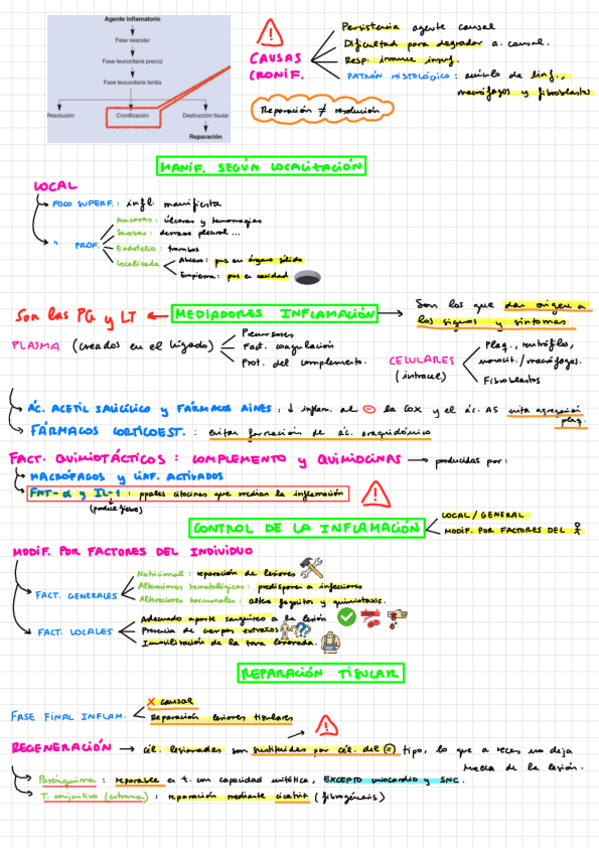 Agente inflamatorio
Fase vascular
Fase leucocitaria precoz
Fase leucocitaria tardía
Resolución
Cronificación
Destrucción tisular
Reparación
CAUSAS CRONIF.
Persistencia agente causal
Dificultad para degradar a. causal.
Resp inmune insuf.
PATRÓN HISTOLÓGICO: acúmulo de linf.,
macrófagos y fibroblastos
Reparación ≠ resolución
MANIF. SEGÚN LOCALIZACIÓN
LOCAL
FOCO SUPERF.: infl. manifiesta
" PROF.
Mucosas: úlceras y hemorragias
Serosas: derrame pleural...
Endotelio: trombos
Localizada
Absceso: pus en órgano sólido
Empiema: pus en cavidad
Son las PG y LT ← MEDIADORES INFLAMACIÓN → Son los que dan origen a
los signos y síntomas
PLASMA (creados en el hígado)
Precursores
Fact. coagulación
Prot. del complemento.
CELULARES (intracel)
Plaq., neutrófilos,
monocit./macrófagos.
Fibroblastos
ÁC. ACETIL SALICÍLICO y FÁRMACOS AINES: ↓ inflam. al ⊖ la COX y el ác. AS evita agregación
plaq.
FÁRMACOS CORTICOEST.: evitan formación de ác. araquidónico
FACT. QUIMIOTÁCTICOS: COMPLEMENTO y QUIMIOCINAS → producidas por:
MACRÓFAGOS y LINF. ACTIVADOS
FNT-α y IL-1: ppales citocinas que median la inflamación
(produce fiebre)
CONTROL DE LA INFLAMACIÓN
LOCAL/GENERAL
MODIF. POR FACTORES DEL
MODIF. POR FACTORES DEL INDIVIDUO
FACT. GENERALES
Nutricional: reparación de lesiones
Alteraciones hematológicas: predispone a infecciones
Alteraciones hormonales: altera fagocitos y quimiotaxis.
FACT. LOCALES
Adecuado aporte sanguíneo a la lesión
Presencia de cuerpos extraños
Inmovilización de la zona lesionada.
REPARACIÓN TISULAR
FASE FINAL INFLAM.
X causal
Reparación lesiones tisulares
REGENERACIÓN → cél. lesionadas son sustituidas por cél. del = tipo, lo que a veces no deja
huella de la lesión.
Parénquima: reparable en t. con capacidad mitótica, EXCEPTO miocardio y SNC.
T. conjuntivo (estroma): reparación mediante cicatriz (fibrogénesis)